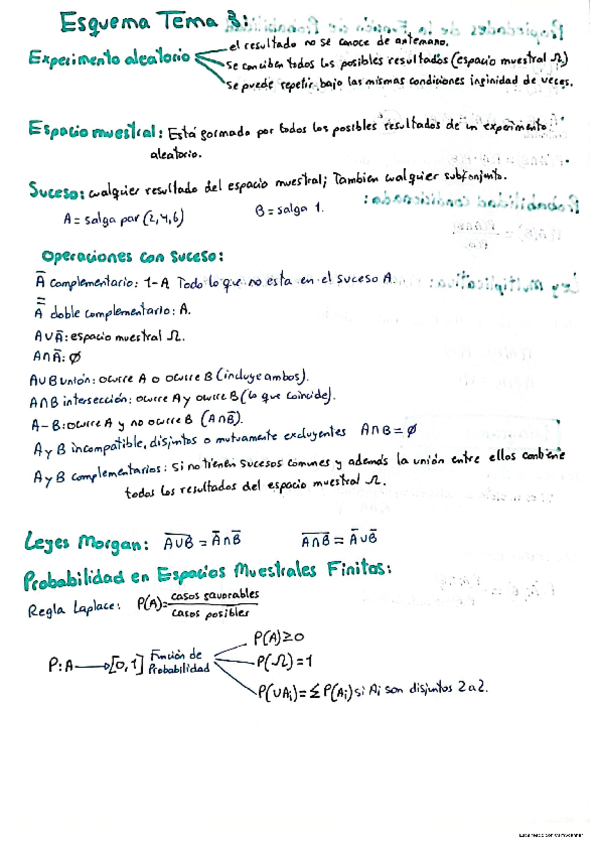 Esquema Tema 3:
Experimento aleatorio
el resultado no se conoce de antemano.
se conciben todos los posibles resultados (espacio muestral Ω)
se puede repetir bajo las mismas condiciones infinidad de veces.
Espacio muestral: Está formado por todos los posibles resultados de un experimento
aleatorio.
Suceso: cualquier resultado del espacio muestral; Tambien cualquier subconjunto.
A = salga par (2,4,6) B = salga 1.
Operaciones con suceso:
A̅ complementario: 1-A Todo lo que no esta en el suceso A.
A̿ doble complementario: A.
A∪A̅: espacio muestral Ω.
A∩A̅: ∅
A∪B unión: ocurre A o ocurre B (incluye ambos).
A∩B intersección: ocurre A y ocurre B (lo que coincide).
A-B: ocurre A y no ocurre B (A∩B̅).
A y B incompatible, disjuntos o mutuamente excluyentes A∩B = ∅
A y B complementarios: si no tienen sucesos comunes y además la unión entre ellos contiene
todos los resultados del espacio muestral Ω.
Leyes Morgan: A̅∪̅B̅ = A̅∩B̅ A̅∩̅B̅ = A̅∪B̅
Probabilidad en Espacios Muestrales Finitos:
Regla Laplace: P(A)= casos favorables / casos posibles
P: A → [0,1] Función de Probabilidad
P(A)≥0
P(Ω)=1
P(∪Ai)=≤P(Ai) si Ai son disjuntos 2 a 2.